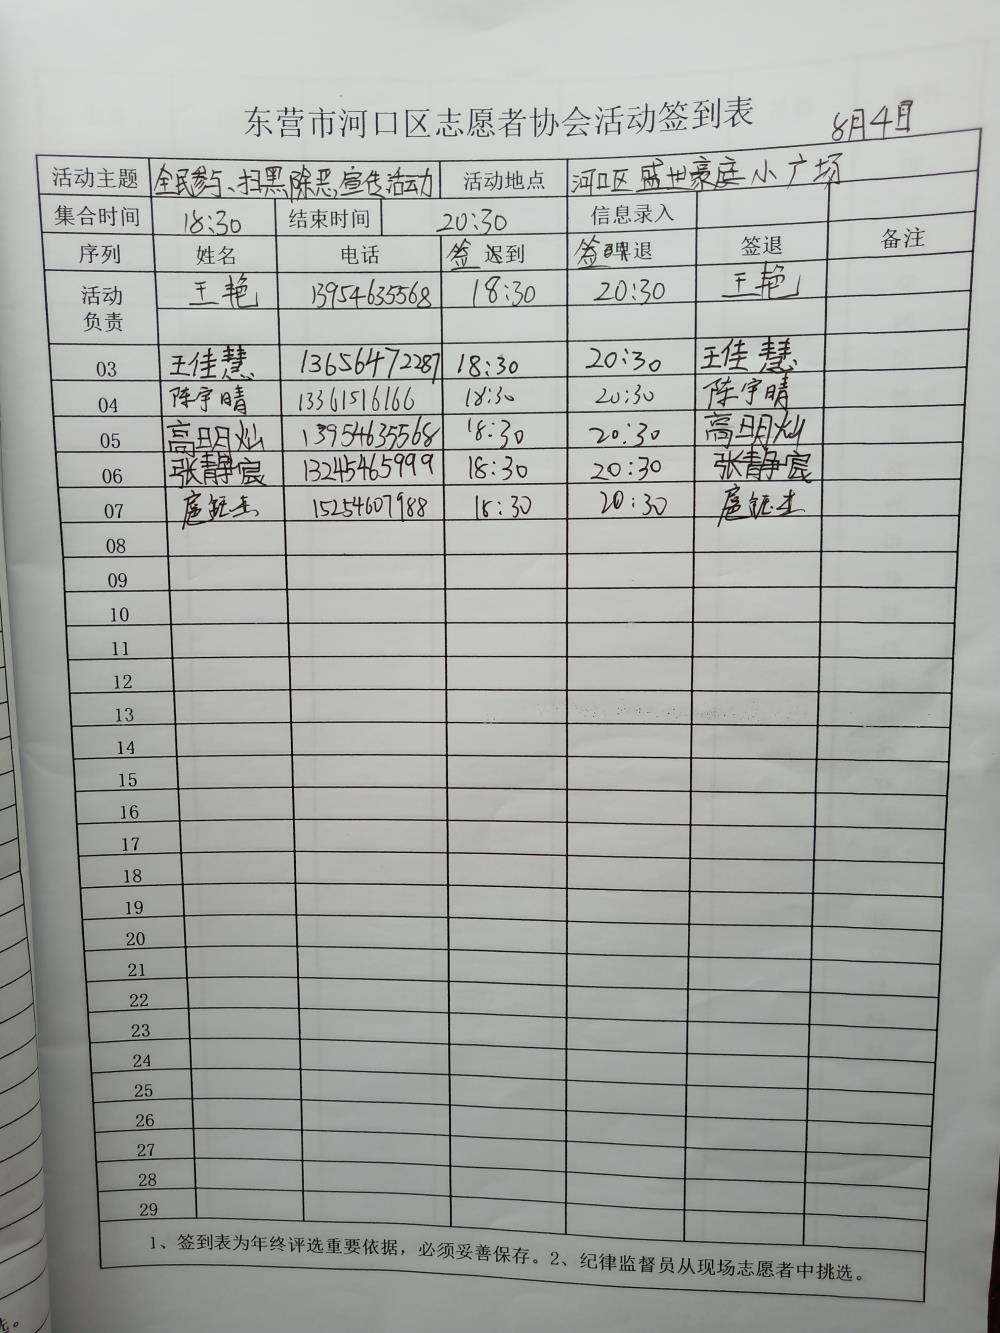 东营市河口区志愿者协会活动签到表 8月4日
活动主题 全民参与、扫黑除恶,宣传活动 活动地点 河口区盛世豪庭小广场
集合时间 18:30 结束时间 20:30 信息录入
序列 姓名 电话 签 迟到 签 早退 签退 备注
活动负责 王艳 13954635568 18:30 20:30 王艳
03 王佳慧 13656472287 18:30 20:30 王佳慧
04 陈宇晴 13361516166 18:30 20:30 陈宇晴
05 高明灿 13954635568 18:30 20:30 高明灿
06 张静宸 13245465999 18:30 20:30 张静宸
07 扈钰杰 15254607988 18:30 20:30 扈钰杰
08
09
10
11
12
13
14
15
16
17
18
19
20
21
22
23
24
25
26
27
28
29
1、签到表为年终评选重要依据，必须妥善保存。2、纪律监督员从现场志愿者中挑选。